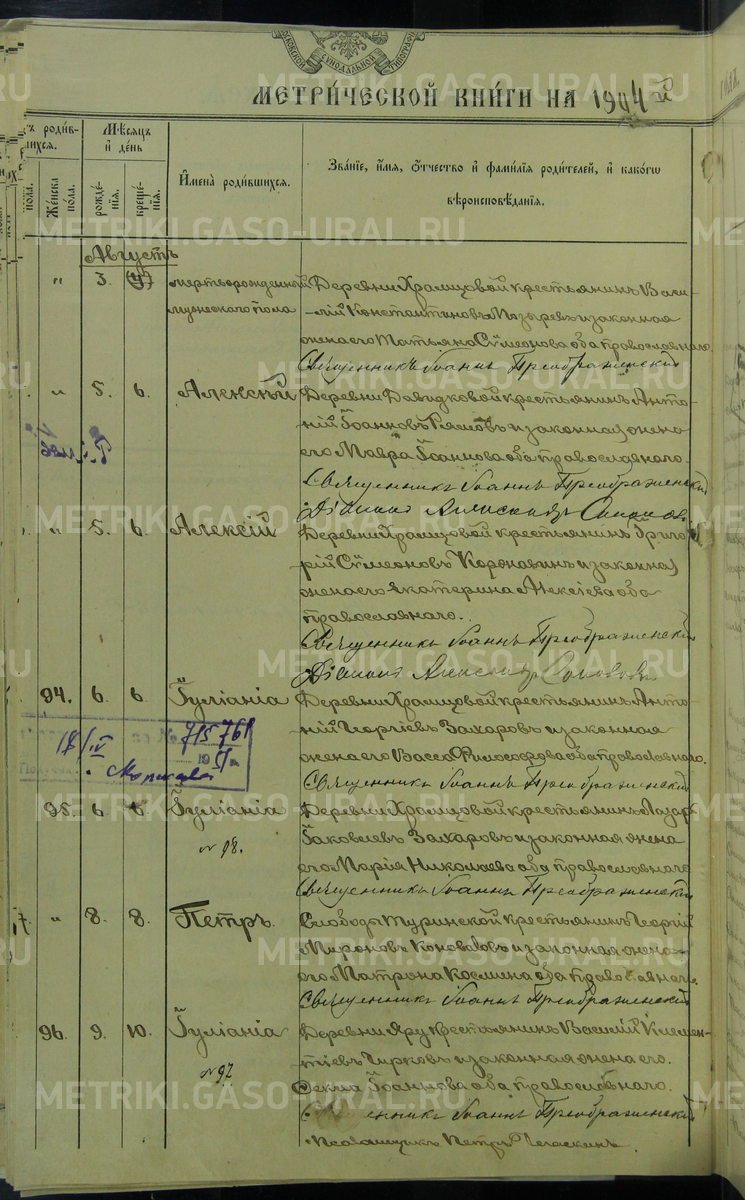 МОСКОВСКОЙ СѴНОДАЛЬНОЙ ТИПОГРАФІИ
МЕТРИ́ЧЕСКОЙ КНИ́ГИ НА 1904 й
METRIKI.GASO-URAL.RU
родив-шихся.
Мѣсяцъ и день
Имена родившихся.
Званіе, имя, отчество и фамилія родителей, и какогѡ вѣроисповѣданія.
пола.
Женска пола.
рожде-нія.
креще-нія.
Августъ
" 3. мертворожденный Деревни Храмцовой крестьянинъ Васи-
мужескаго пола лій Константиновъ Пузыревъ и законная
жена его Татьяна Сѵмеонова оба православнаго.
Священникъ Іоаннъ Преображенскій
" 5. 6. Алексѣй Деревни Давыдковой крестьянинъ Анто-
ній Іоанновъ и законная жена
его Мавра Іоаннова оба православнаго.
Священникъ Іоаннъ Преображенскій
Діаконъ Александръ
" 5. 6. Алексій Деревни Храмцовой крестьянинъ Григо-
рій Сѵмеоновъ и законная
жена его Екатерина Алексіева оба
православнаго.
Священникъ Іоаннъ Преображенскій
Діаконъ Александръ
94. 6. 6. Іуліанія Деревни Храмцовой крестьянинъ Анто-
ній Георгіевъ Захаровъ и законная
жена его Васса Философова оба православнаго.
Священникъ Іоаннъ Преображенскій
715761
95. 6 6. Іуліанія Деревни Храмцовой крестьянинъ Лазарь
Іаковлевъ Захаровъ и законная жена
№ 98. его Марія Николаева оба православнаго
Священникъ Іоаннъ Преображенскій
17. " 8. 8. Петръ. Слободы Туринской крестьянинъ Георгій
Мироновъ Коноваловъ и законная жена
его Матрона Космина оба православнаго.
Священникъ Іоаннъ Преображенскій
96. 9. 10. Іуліанія Деревни Яру крестьянинъ Василій Климен-
тіевъ Чирковъ и законная жена его.
№ 97 Ѳекла Іоаннова оба православнаго.
Священникъ Іоаннъ Преображенскій
Псаломщикъ Петръ